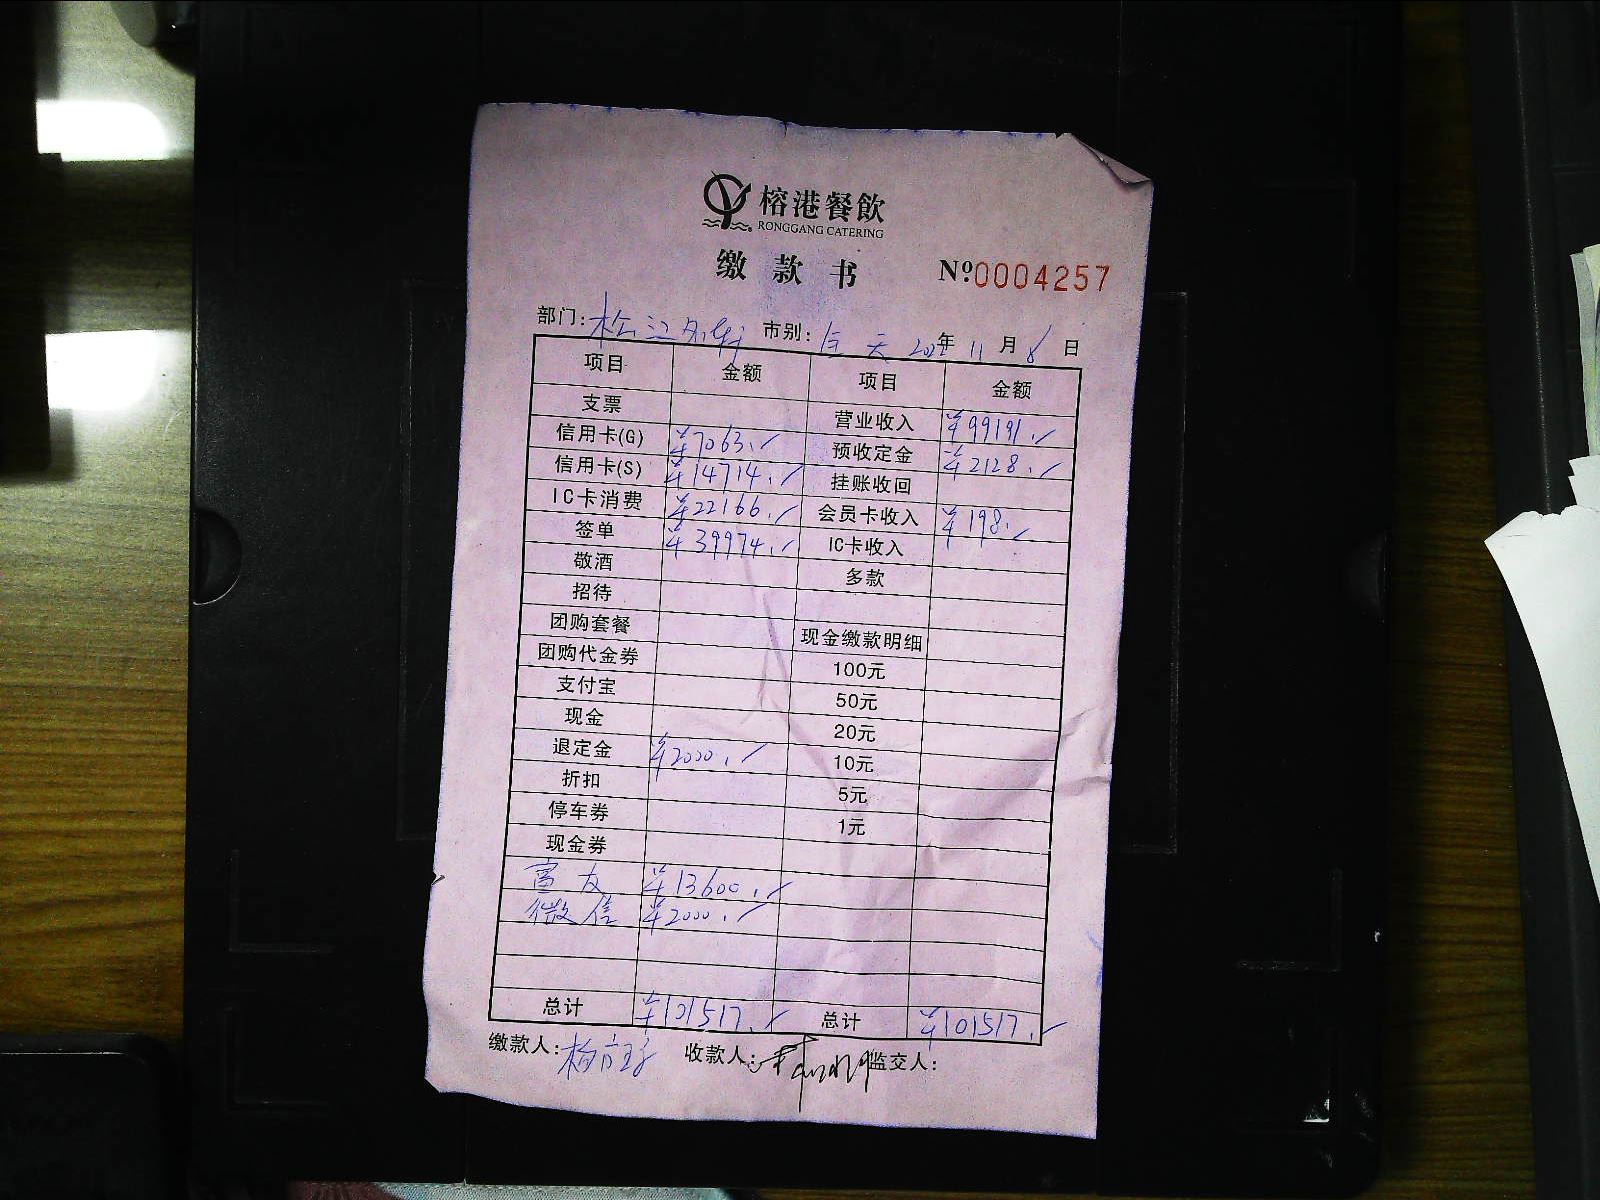 榕港餐飲
RONGGANG CATERING
缴款书 №0004257
部门: 松江 市别: 全天 年 11 月 8 日
项目 金额 项目 金额
支票 营业收入 ¥99191.
信用卡(G) ¥7063. 预收定金 ¥2128.
信用卡(S) ¥14714. 挂账收回
IC卡消费 ¥22166. 会员卡收入 ¥198.
签单 ¥39974. IC卡收入
敬酒 多款
招待
团购套餐 现金缴款明细
团购代金券 100元
支付宝 50元
现金 20元
退定金 ¥2000. 10元
折扣 5元
停车券 1元
现金券
富友 ¥13600.
微信 ¥2000.
总计 ¥101517. 总计 ¥101517.
缴款人: 收款人: 监交人: